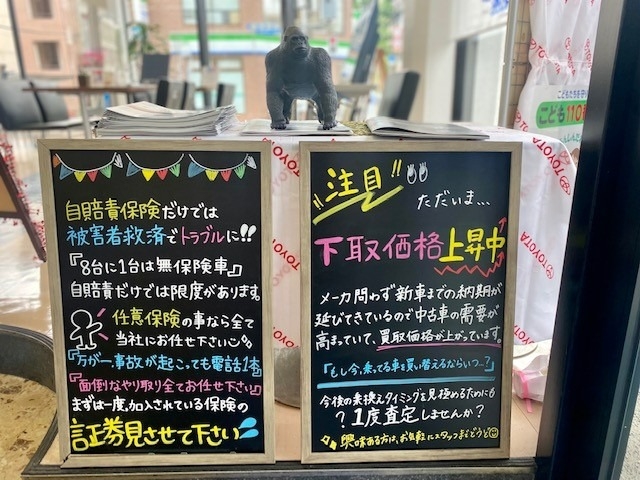 自賠責保険だけでは
被害者救済でトラブルに!!
『8台に1台は無保険車』
自賠責だけでは限度があります。
任意保険の事なら全て
当社にお任せ下さい
『万が一事故が起こっても電話1本』
『面倒なやり取り全てお任せ下さい』
まずは一度、加入されている保険の
証券見せて下さい
注目!!
ただいま...
下取価格上昇中
メーカ問わず新車までの納期が
延びてきているので中古車の需要が
高まっていて、買取価格が上がっています。
『もし今、乗ってる車を買い替えるならいつ...?』
今後の乗換えタイミングを見極めるためにも
?1度査定しませんか?
興味ある方は、お気軽にスタッフまでどうぞ
TOYOTA
TOYOTA
TOYOTA
TOYOTA
こども110番